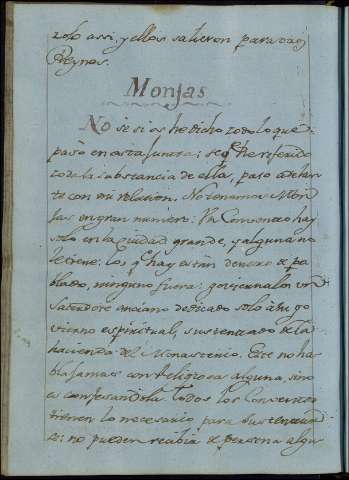 zolo assi, y ellos salieron para otros
Reynos.
Monjas
No se si os he dicho todo lo que
paso en esta Junta: se q̃ he referido
toda la substancia de ella, paso adelan-
te con mi relacion. No tenemos Mon-
jas en gran numero: Un Convento hay
solo en la Ciudad grande, y alguna no
le tiene: los q̃ hay estan dentro de po-
blado, ninguno fuera: goviernalos un
Sacerdote anciano dedicado solo à su go-
vierno espiritual, sustentado de la
hacienda del Monasterio. Este no ha-
bla jamas con Religiosa alguna, sino
es confesandola. Todos los Conventos
tienen lo necesario para sustentar
se: no pueden recibir de persona algu-